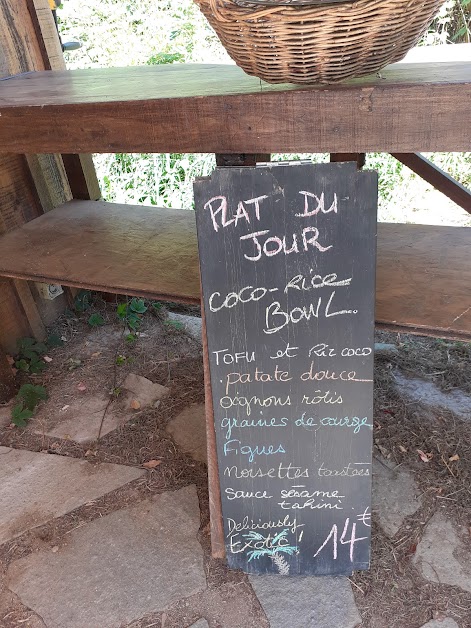 PLAT DU
JOUR
COCO-RICE
BOWL
TOFU et Riz coco
. patate douce
oignons rôtis
graines de courge
Figues
Noisettes toastées
Sauce sésame
tahini.
Deliciously
Exotic!
14€